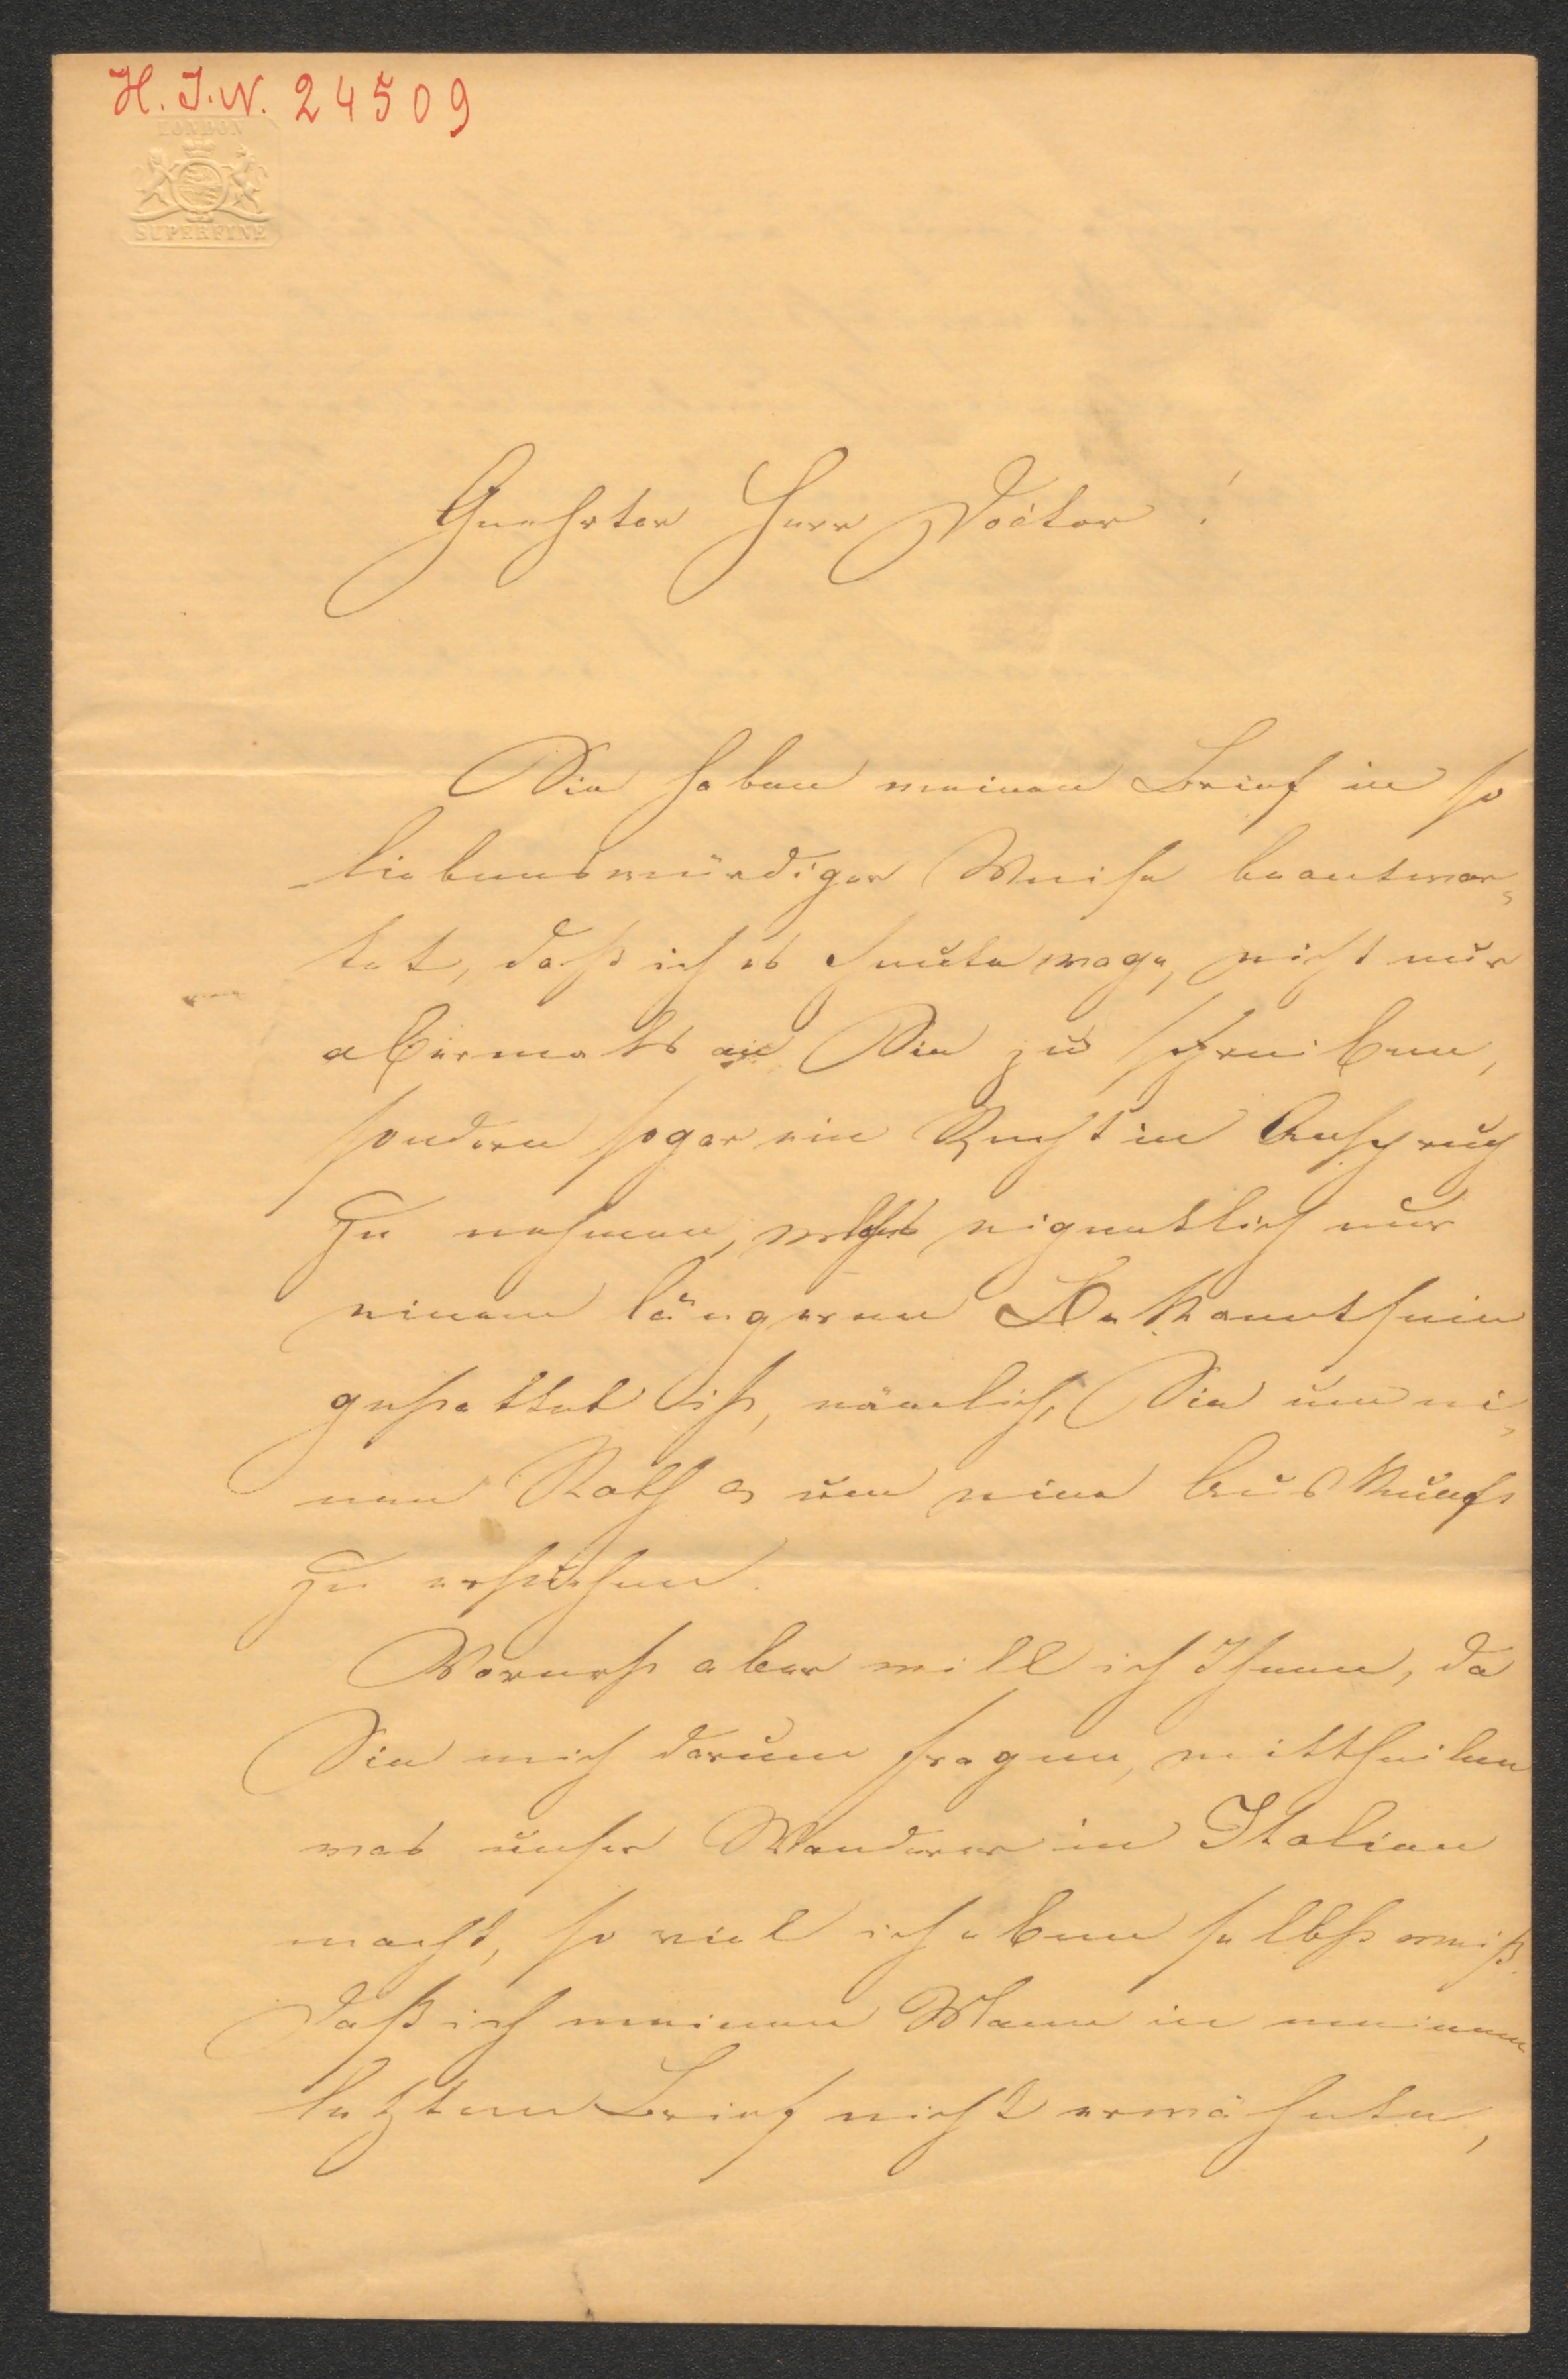 H. I. N. 24509
LONDON
SUPERFINE
Geehrter Herr Doctor!
Sie haben meinen Brief in so
liebenswürdiger Weise beantwor-
tet, daß ich es heute wage, nicht nur
abermals an Sie zu schreiben,
sondern sogar ein Recht in Anspruch
zu nehmen, welches eigentlich nur
einem längeren Bekanntsein
gestattet ist, nämlich, Sie um ei-
nen Rath & um eine Auskunft
zu ersuchen.
Vorerst aber will ich Ihnen, da
Sie mich darum fragen, mittheilen
was unser Wanderer in Italien
macht, so viel ich eben selbst weiß.
Daß ich meinen Mann in meinem
letzten Brief nicht erwähnte,